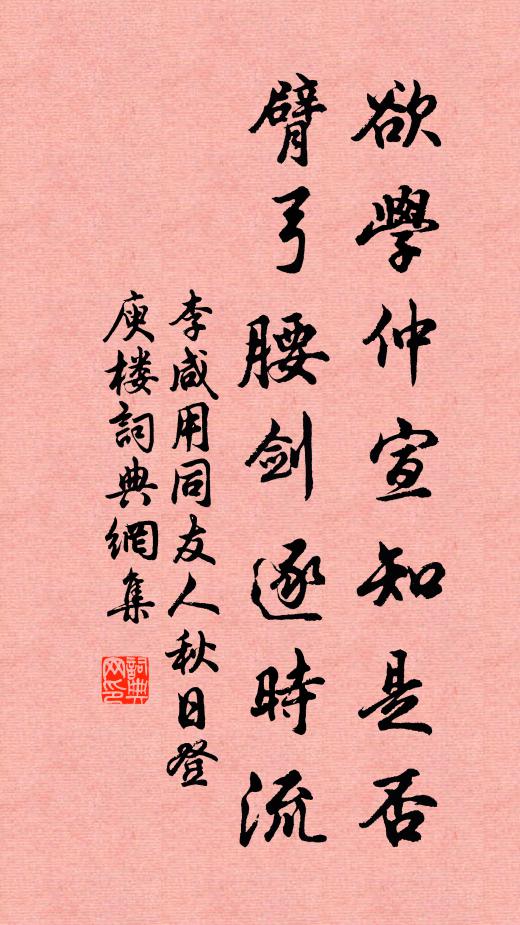 欲學仲宣知是否
臂弓腰劍逐時流
李咸用同友人秋日登
庾楼詞典網集
詞典網印